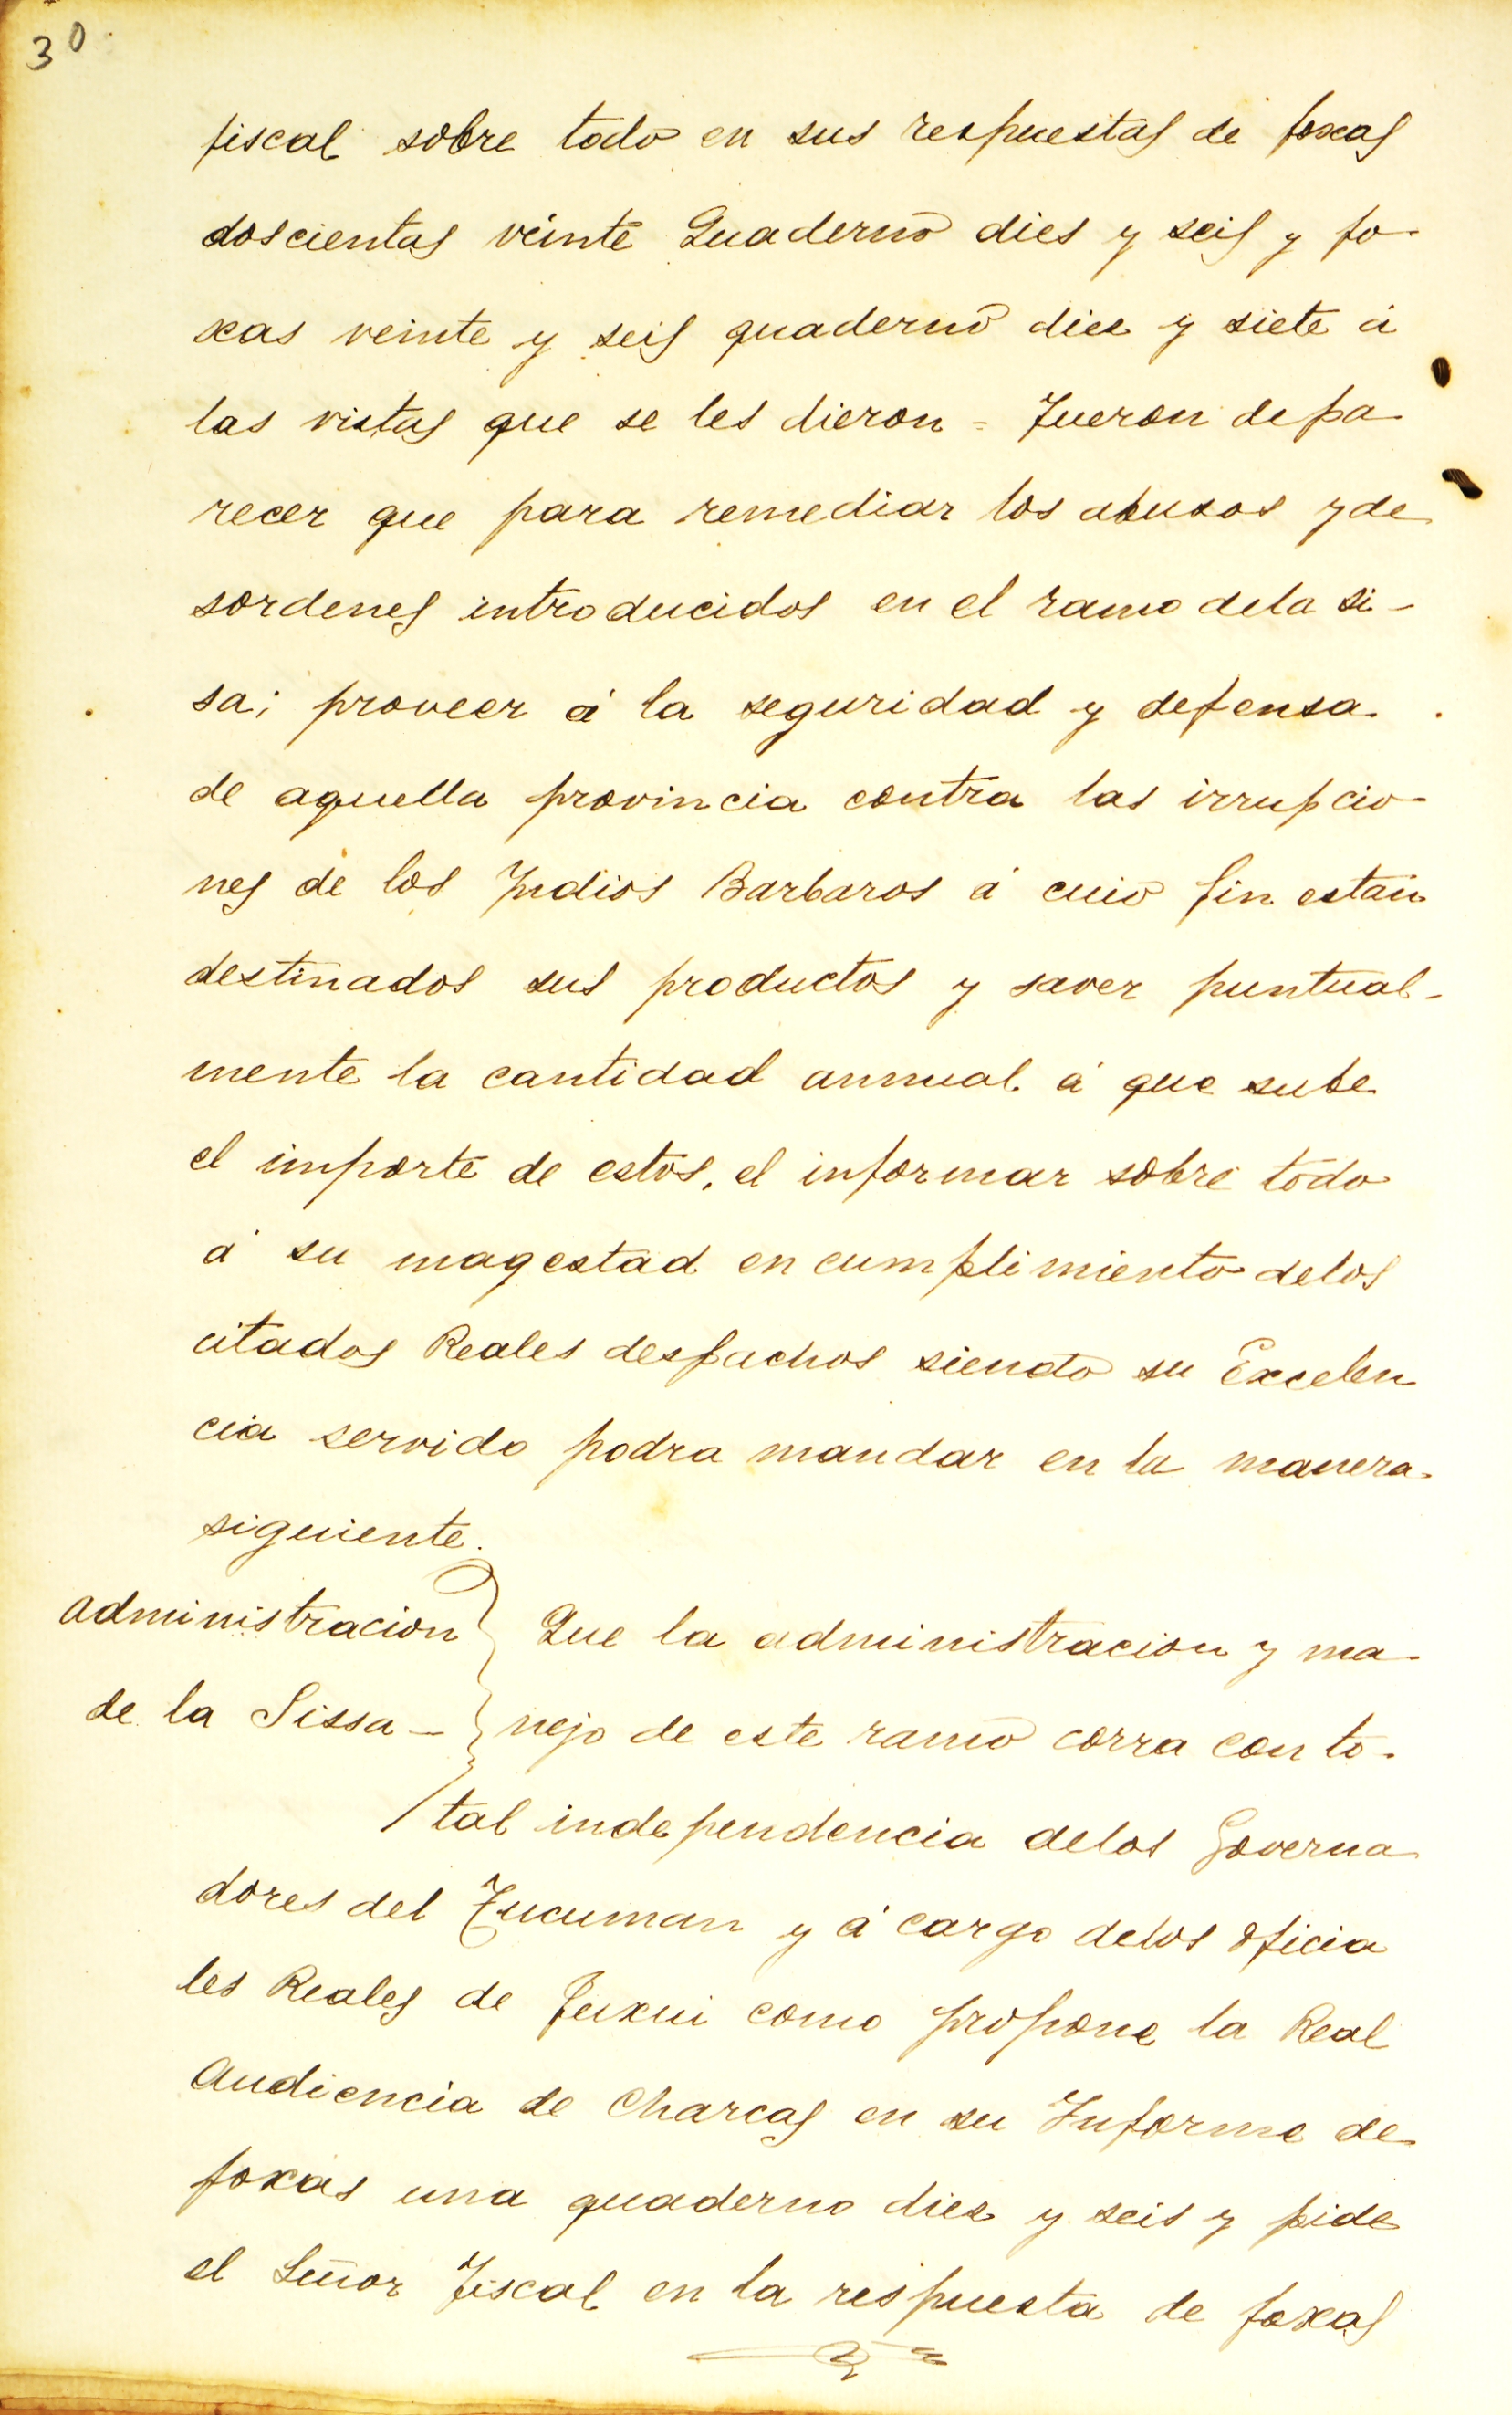 30
fiscal sobre todo en sus respuestas de foxas
doscientas veinte Quaderno dies y seis y fo-
xas veinte y seis quaderno diez y siete á
las vistas que se les dieron = Fueron de pa-
recer que para remediar los abusos y de
sordenes introducidos en el ramo dela si-
sa; proveer á la seguridad y defensa
de aquella provincia contra las irrupcio-
nes de los Indios Barbaros á cuio fin estan
destinados sus productos y saver puntual-
mente la cantidad annual á que sube
el importe de estos, el informar sobre todo
á su magestad en cumplimiento delos
citados Reales despachos siendo su Excelen
cia servido podra mandar en la manera
siguiente.
administracion
de la Sissa -
Que la administracion y ma-
nejo de este ramo corra con to-
tal independencia delos Governa
dores del Tucuman y á cargo delos oficia
les Reales de Juxui como propone la Real
Audiencia de Charcas en su Informe de
foxas una quaderno diez y seis y pide
el Señor Fiscal en la respuesta de foxas